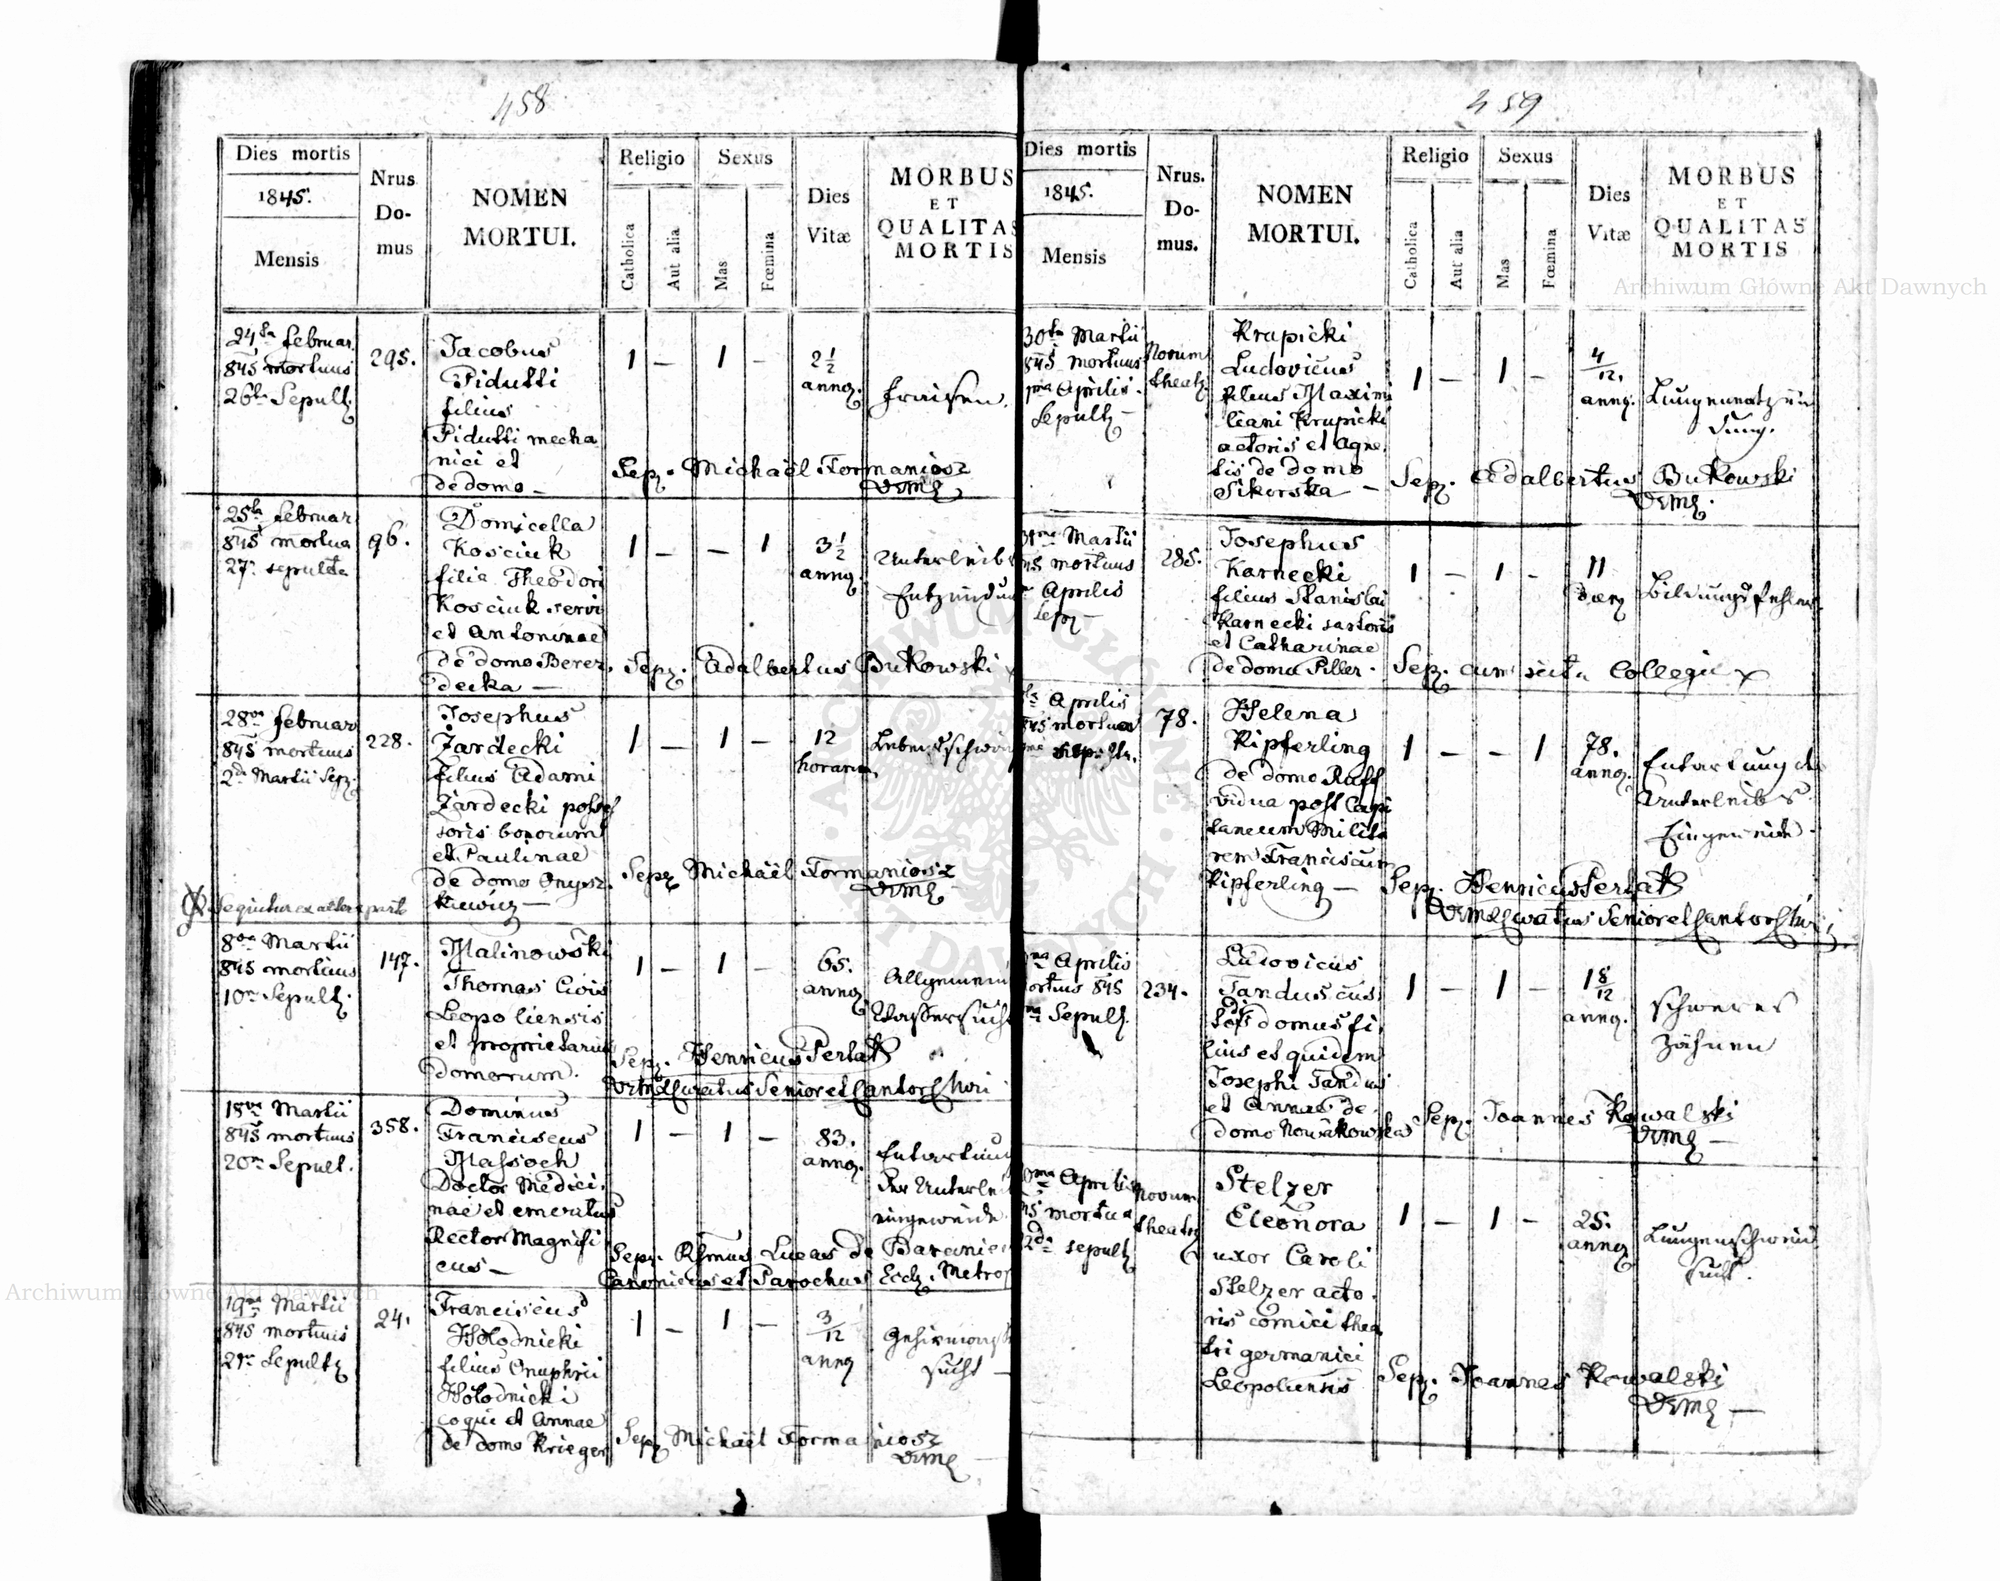 458
Dies mortis
1845.
Mensis
Nrus
Do-
mus
NOMEN
MORTUI.
Religio
Catholica
Aut alia
Sexus
Mas
Fœmina
Dies
Vitæ
MORBUS
ET
QUALITAS
MORTIS
24ta februar.
845 mortuus
26ta Sepult.
295.
Jacobus
Pidutti
filius
Pidutti mecha
nici et
de domo —
1 — 1 —
2 1/2
annor.
Fraisen.
Sep. Michaël Formaniosz
25ta februar
845 mortua
27. sepulta
96.
Domicella
Kosciuk
filia Theodori
Kosciuk servi
et Antoninae
de domo Berez
decka —
1 — — 1
3 1/2
annor.
Unterleibs
Entzündun
Sep. Adalbertus Bukowski
28va februar
845 mortuus
2da Martii Sep.
228.
Josephus
Jardecki
filius Adami
Jardecki posses
soris bonorum
et Paulinae
de domo Onysz
kiewicz —
1 — 1 —
12
horarum.
Lebensschwä
Sep. Michaël Formaniosz
Sequitur ex altera parte
8va Martii
845 mortuus
10ma Sepult.
147.
Malinowski
Thomas Civis
Leopoliensis
et proprietarius
domorum.
1 — 1 —
65.
annor
Allgemein
Wassersucht
Sep. Henricus Perlak
Curatus Senior et Cantor Chori
18va Martii
845 mortuus
20ma Sepult.
358.
Dominus
Franciscus
Massoch
Doctor Medici
nae et emeritus
Rector Magnifi
cus —
1 — 1 —
83.
annor.
Entartung
der Unterlei
eingeweide
Sep. Rssmus Lucas de Baranie
Canonicus et Parochus Eccl. Metrop
19na Martii
845 mortuus
21ma Sepult
24.
Franciscus
Hołodnicki
filius Onuphrii
Hołodnicki
coqui et Annae
de domo Krieger
1 — 1 —
3/12
annor
Gehirnwasser
sucht —
Sep. Michaël Formaniosz
459
Dies mortis
1845.
Mensis
Nrus.
Do-
mus.
NOMEN
MORTUI.
Religio
Catholica
Aut alia
Sexus
Mas
Fœmina
Dies
Vitæ
MORBUS
ET
QUALITAS
MORTIS
30ta Martii
845 mortuus
1ma Aprilis
Sepult —
Novum
theatr.
Krupicki
Ludovicus
filius Maximi
liani Krupicki
actoris et Agne
tis de domo
Sikorska —
1 — 1 —
4/12.
annor.
Lungenentzün
dung.
Sep. Adalbertus Bukowski
31ma Martii
mortuus
Aprilis
Sep —
285.
Josephus
Karnecki
filius Stanislai
Karnecki sartoris
et Catharinae
de domo Piller.
1 — 1 —
11
dier
Bildungsfehler.
Sep. cum Collegii
Aprilis
845 mortua
sepulta.
78.
Helena
Kipferling
de domo Raff
vidua post Capi
taneum Milita
rem Franciscum
Kipferling —
1 — — 1
78.
annor.
Entartung der
Unterleibs
Eingeweide
Sep. Henricus Perlak
Curatus Senior et Cantor Chori
Aprilis
mortuus 845
Sepult.
234.
Ludovicus
Tanduscius
domus fi
lius et quidem
Josephi Tandus
et Annae de
domo Nowakowska
1 — 1 —
1 8/12
annor.
Schweres
Zähnen
Sep. Joannes Kowalski
Aprilis
mortua
2da sepult
Novum
theatr
Stelzer
Eleonora
uxor Caroli
Stelzer acto
ris comici thea
tri germanici
Leopoliensis
1 — 1 —
25.
annor
Lungenschwind
sucht.
Sep. Joannes Kowalski
Archiwum Główne Akt Dawnych
Archiwum Główne Akt Dawnych
ARCHIWUM GŁÓWNE AKT DAWNYCH